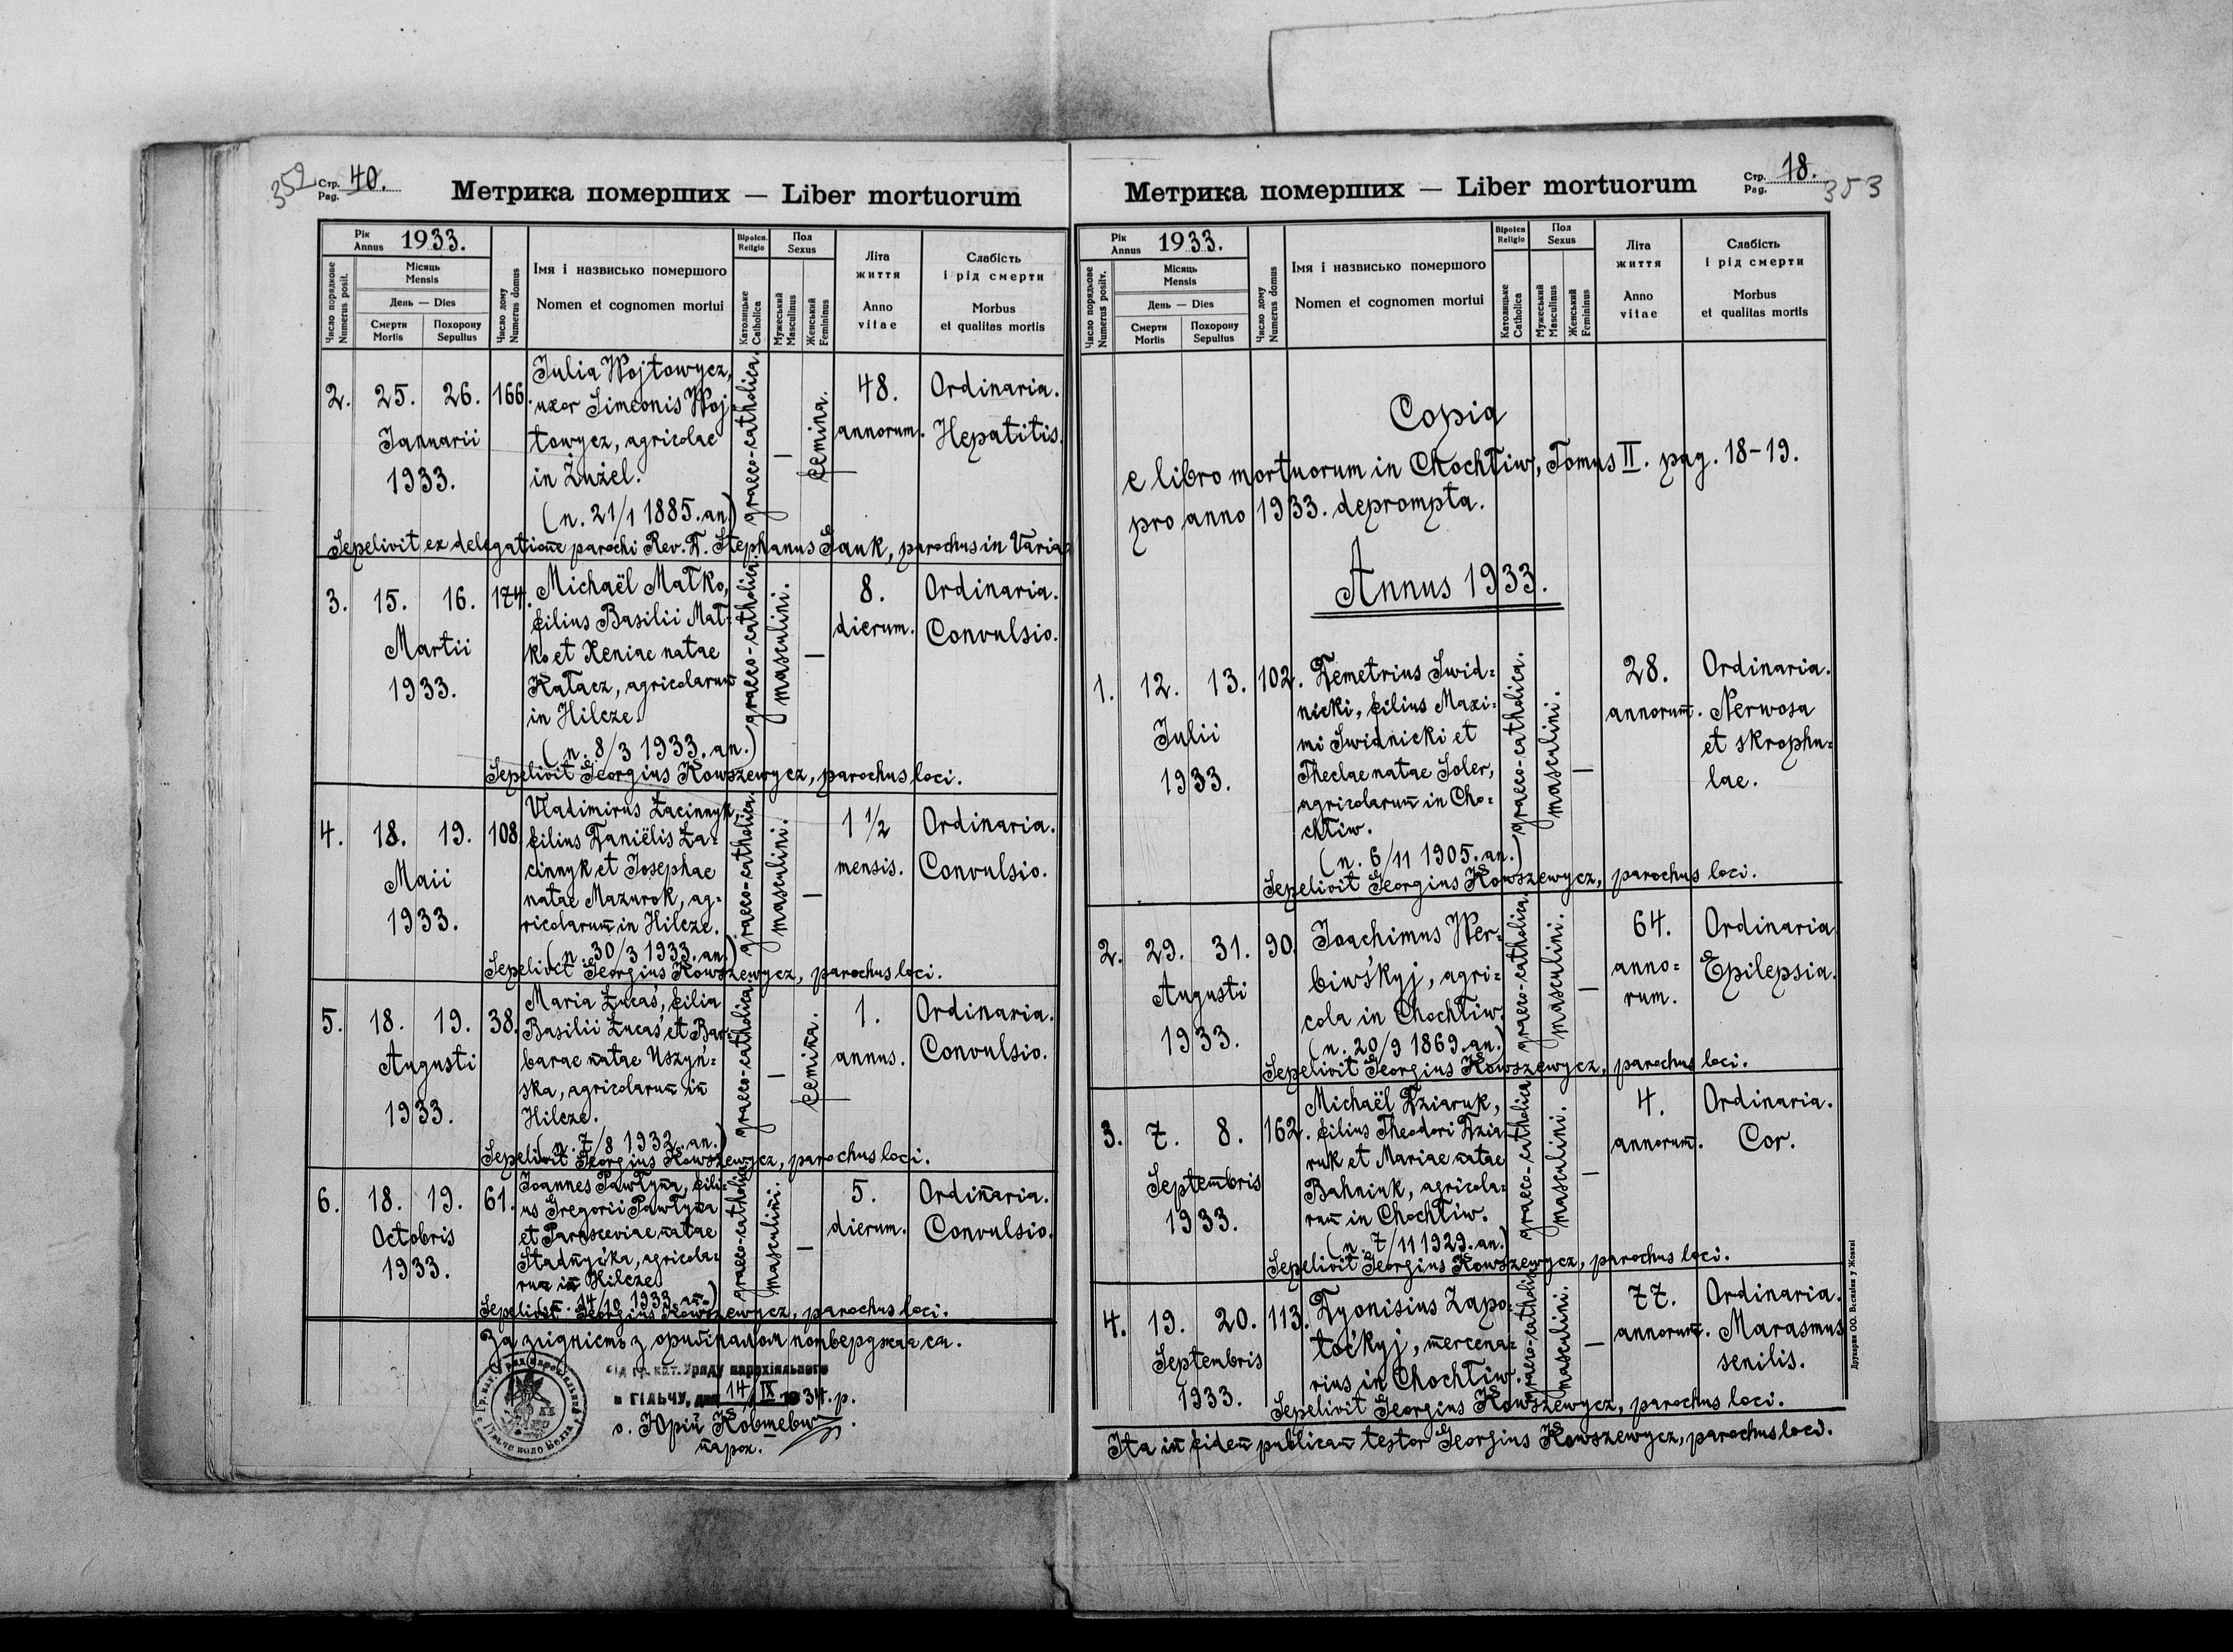 352
Стр. Pag. 40.
Метрика померших — Liber mortuorum
Рік Annus 1933.
Число порядкове Numerus posit.
Місяць Mensis
День — Dies
Смерти Mortis
Похорону Sepultus
Число дому Numerus domus
Імя і назвисько помершого
Nomen et cognomen mortui
Віроісп. Religio
Католицьке Catholica
Пол Sexus
Мужеський Masculinus
Женський Femininus
Літа життя
Anno vitae
Слабість і рід смерти
Morbus et qualitas mortis
2. 25. 26. Januarii 1933. 166.
Julia Wojtowycz,
uxor Simeonis Woj
towycz, agricolae
in Żużel.
(n. 21/1 1885. an.)
graeco-catholica.
—
femina.
48. annorum.
Ordinaria.
Hepatitis.
Sepelivit ex delegatione parochi Rev. D. Stephanus Sauk, parochus in Variaz
3. 15. 16. Martii 1933. 174.
Michaël Małko,
filius Basilii Mał=
ko et Xeniae natae
Kałacz, agricolarum
in Hilcze.
(n. 8/3 1933. an.)
graeco-catholica.
masculini.
—
8. dierum.
Ordinaria.
Convulsio.
Sepelivit Georgius Kowszewycz, parochus loci.
4. 18. 19. Maii 1933. 108.
Vladimirus Łacinnyk,
filius Daniëlis Ła=
cinnyk et Josephae
natae Mazurok, ag=
ricolarum in Hilcze.
(n. 30/3 1933. an.)
graeco-catholica.
masculini.
—
1 ½ mensis.
Ordinaria.
Convulsio.
Sepelivit Georgius Kowszewycz, parochus loci.
5. 18. 19. Augusti 1933. 38.
Maria Łucaś, filia
Basilii Łucaś et Bar=
barae natae Uszyń=
ska, agricolarum in
Hilcze.
(n. 7/8 1932. an.)
graeco-catholica.
—
femina.
1. annus.
Ordinaria.
Convulsio.
Sepelivit Georgius Kowszewycz, parochus loci.
6. 18. 19. Octobris 1933. 61.
Joannes Pawłyna, fili=
us Gregorii Pawłyna
et Parasceviae natae
Stadnyćka, agricola=
rum in Hilcze
(n. 14/10 1933. an.)
graeco-catholica
masculini.
—
5. dierum.
Ordinaria.
Convulsio.
Sepelivit Georgius Kowszewycz, parochus loci.
За згідність з оригіналом потверджає ся.
від гр. кат. Уряду парохіяльного
в ГІЛЬЧУ, дня 14/IX 1934. р.
о. Юрій Ковшевич.
парох.
Стр. Pag. 18.
353
Метрика померших — Liber mortuorum
Рік Annus 1933.
Число порядкове Numerus positv.
Місяць Mensis
День — Dies
Смерти Mortis
Похорону Sepultus
Число дому Numerus domus
Імя і назвисько помершого
Nomen et cognomen mortui
Віроісп Religio
Католицьке Catholica
Пол Sexus
Мужеський Masculinus
Женський Femininus
Літа життя
Anno vitae
Слабість і рід смерти
Morbus et qualitas mortis
Copia
e libro mortuorum in Chochłiw, Tomus II. pag. 18-19.
pro anno 1933. deprompta.
Annus 1933.
1. 12. 13. Julii 1933. 102.
Demetrius Swid=
nicki, filius Maxi=
mi Swidnicki et
Theclae natae Soler,
agricolarum in Cho=
chłiw.
(n. 6/11 1905. an.)
graeco-catholica.
masculini.
—
28. annorum.
Ordinaria.
Nerwosa
et skrophu=
lae.
Sepelivit Georgius Kowszewycz, parochus loci.
2. 29. 31. Augusti 1933. 90.
Joachimus Wer=
biwśkyj, agri=
cola in Chochłiw.
(n. 20/9 1869. an.)
graeco-catholica.
masculini.
—
64. anno=
rum.
Ordinaria
Epilepsia.
Sepelivit Georgius Kowszewycz, parochus loci.
3. 7. 8. Septembris 1933. 162.
Michaël Dziaruk,
filius Theodori Dzia=
ruk et Mariae natae
Bahniuk, agricola=
rum in Chochłiw.
(n. 7/11 1929. an.)
graeco-catholica
masculini.
—
4. annorum.
Ordinaria.
Cor.
Sepelivit Georgius Kowszewycz, parochus loci.
4. 19. 20. Septembris 1933. 113.
Dyonisius Zapo=
toćkyj, mercena=
rius in Chochłiw.
graeco-catholica
masculini.
—
77. annorum.
Ordinaria.
Marasmus
senilis.
Sepelivit Georgius Kowszewycz, parochus loci.
Ita in fidem publicam testor Georgius Kowszewycz, parochus loci.
Друкарня ОО. Василіян у Жовкві